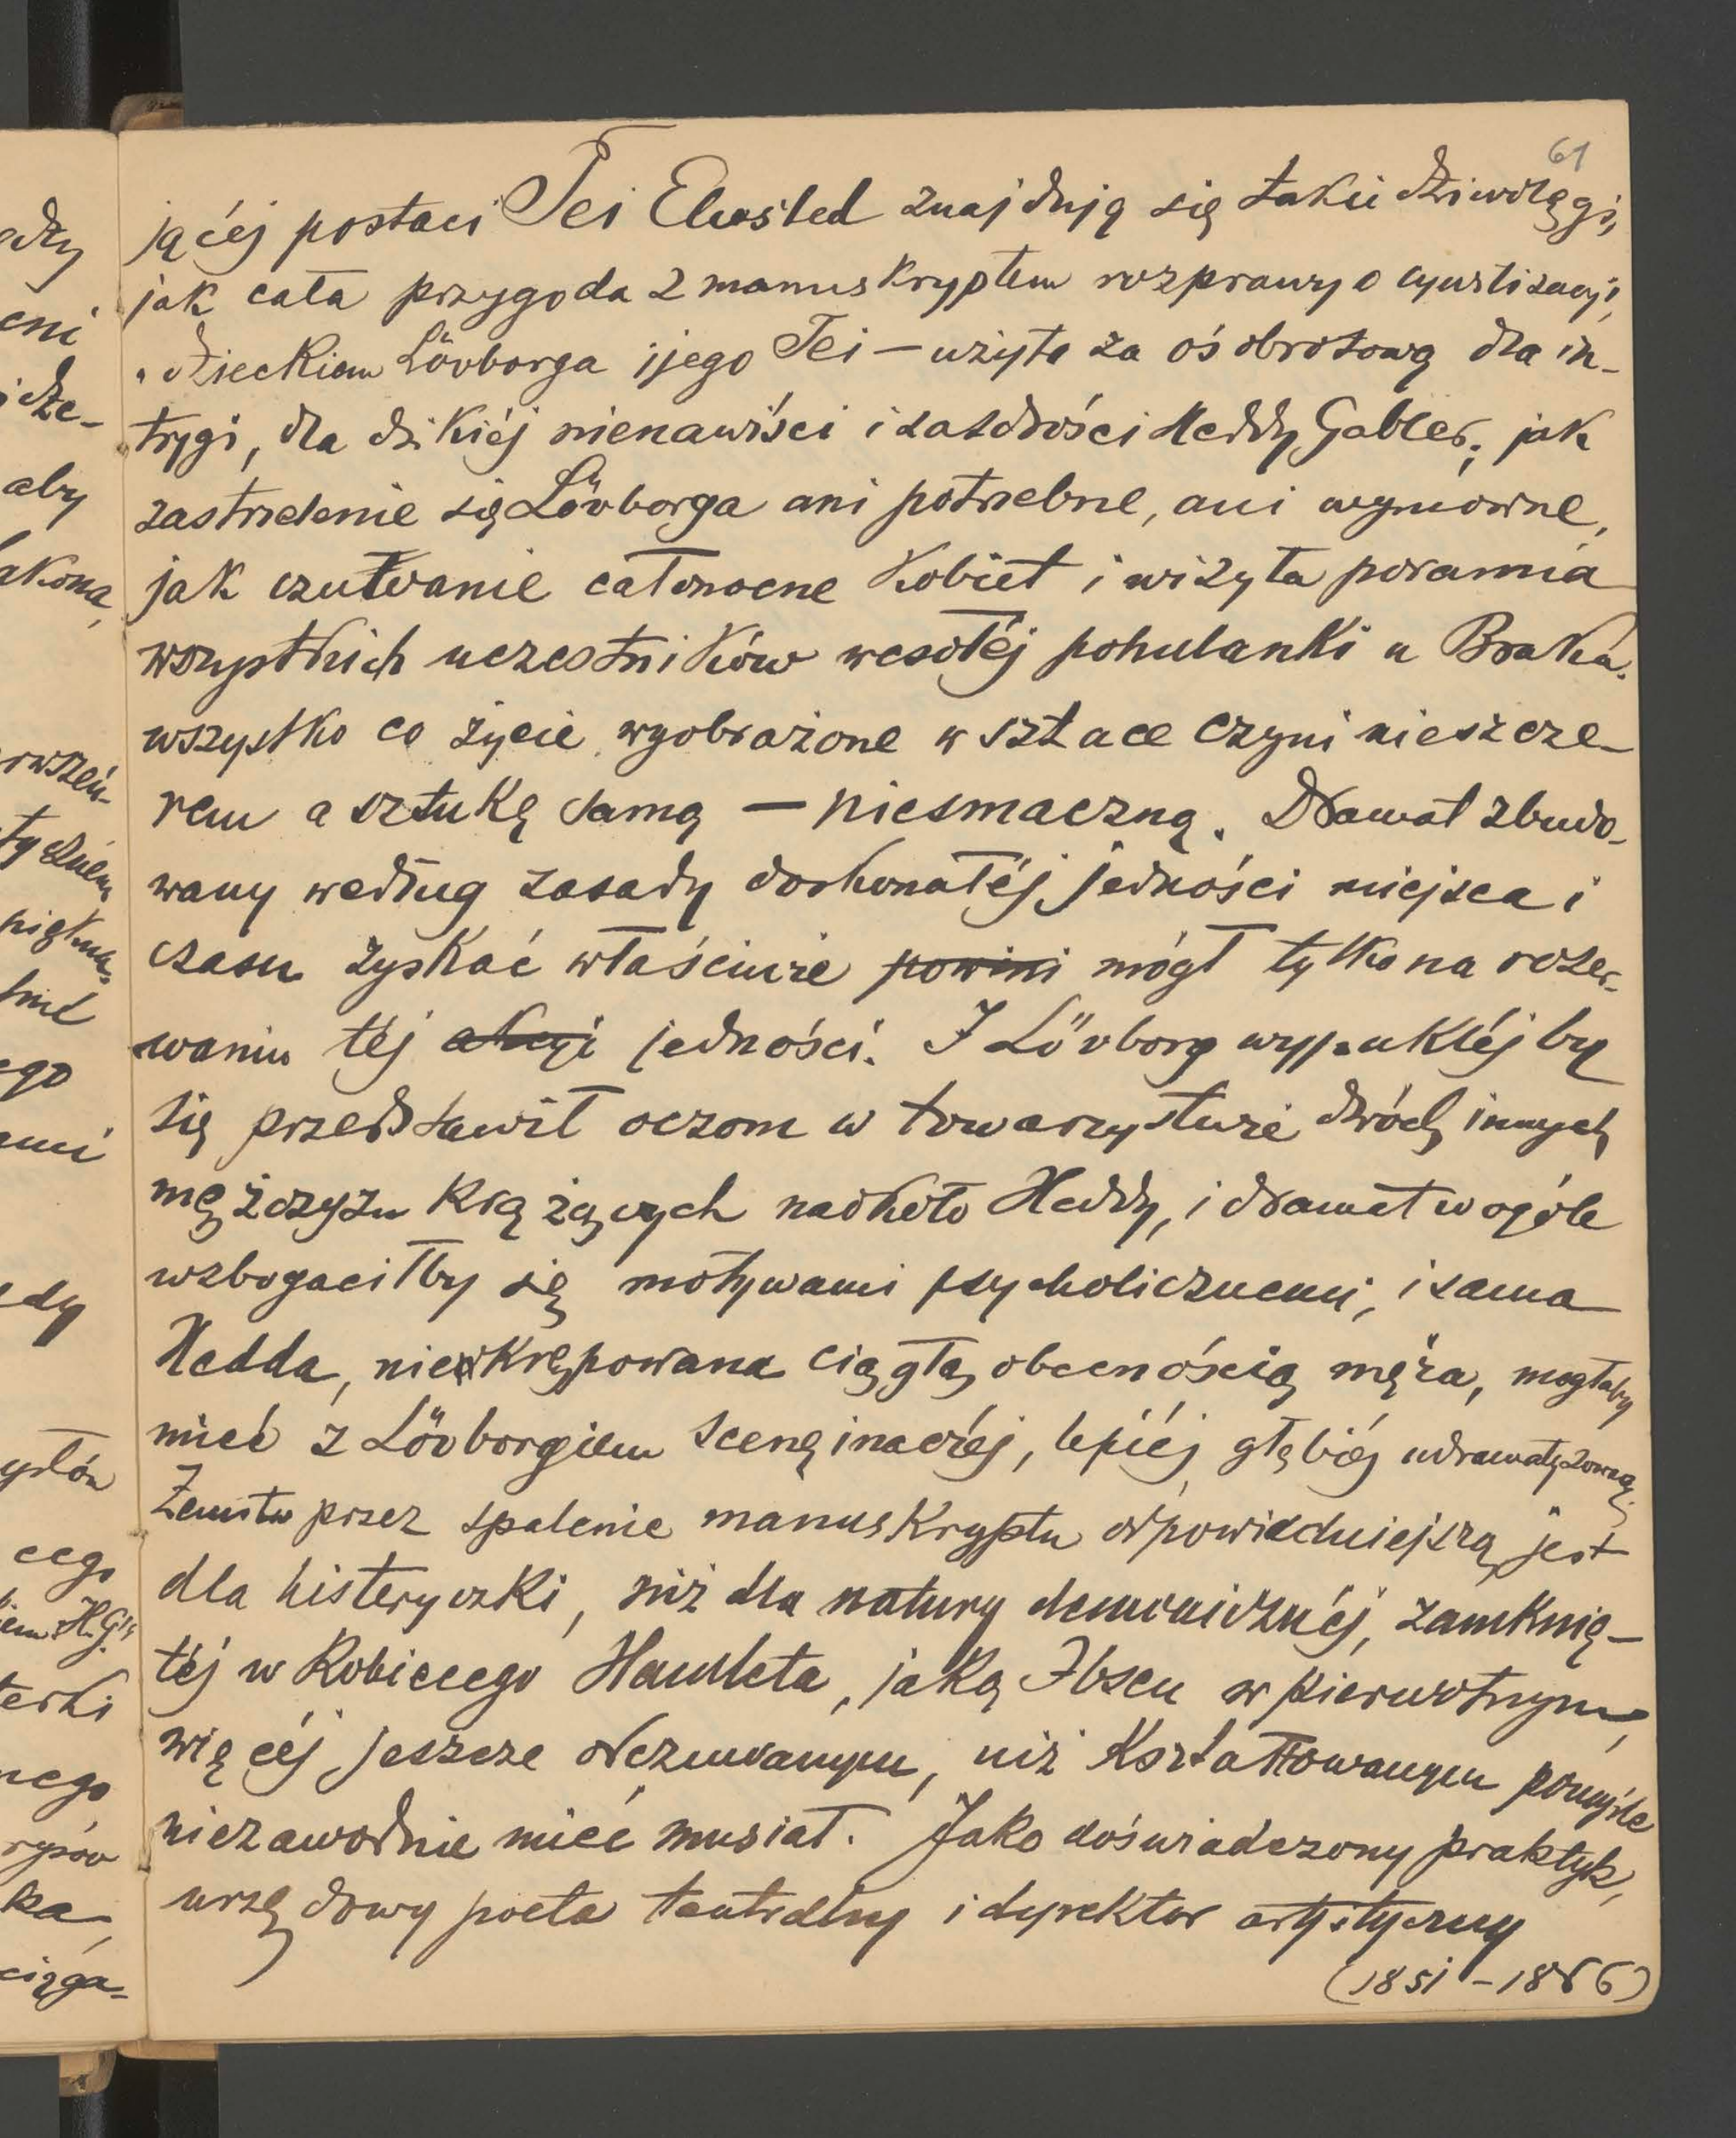 61
jącéj postaci Tei Elwsted znajdują się takie dziwolęgi,
jak cała przygoda z manuskryptem rozprawy o cywilizacyi,
„dzieckiem Lövborga i jego Tei — użyta za oś obrotową dla in-
trygi, dla dzikiéj nienawiści i zazdrości Heddy Gabler; jak
zastrzelenie się Lövborga ani potrzebne, ani wymowne,
jak czuwanie całonocne kobiet i wizyta poranna
wszystkich uczestników wesołéj pohulanki u Braka.
wszystko co życie wyobrażone w sztuce czyni nieszcze-
rem a sztukę samą — niesmaczną. Dramat zbudo-
wany według zasady doskonałéj jedności miejsca i
czasu zyskać właściwie powini mógł tylko na rozer-
waniu téj akcyi jedności. I Lövborg wypukléj by
się przedstawił oczom w towarzystwie dwóch innych
mężczyzn krążących naokoło Heddy, i dramat w ogóle
wzbogaciłby się motywami psycholicznemi, i sama
Hedda, nieskrępowana ciągłą obecnością męża, mogłaby
mieć z Lövborgiem scenę inaczéj, lepiéj, głębiéj udramatyzowaną.
Zemsta przez spalenie manuskryptu odpowiedniejszą jest
dla histeryczki, niż dla natury demonicznéj, zamknię-
téj w kobiecego Hamleta, jaką Ibsen w pierwotnym,
więcéj jeszcze odczuwanym, niż kształtowanym pomyśle
niezawodnie mieć musiał. Jako doświadczony praktyk,
urzędowy poeta teatralny i dyrektor artystyczny
(1851 – 1866)